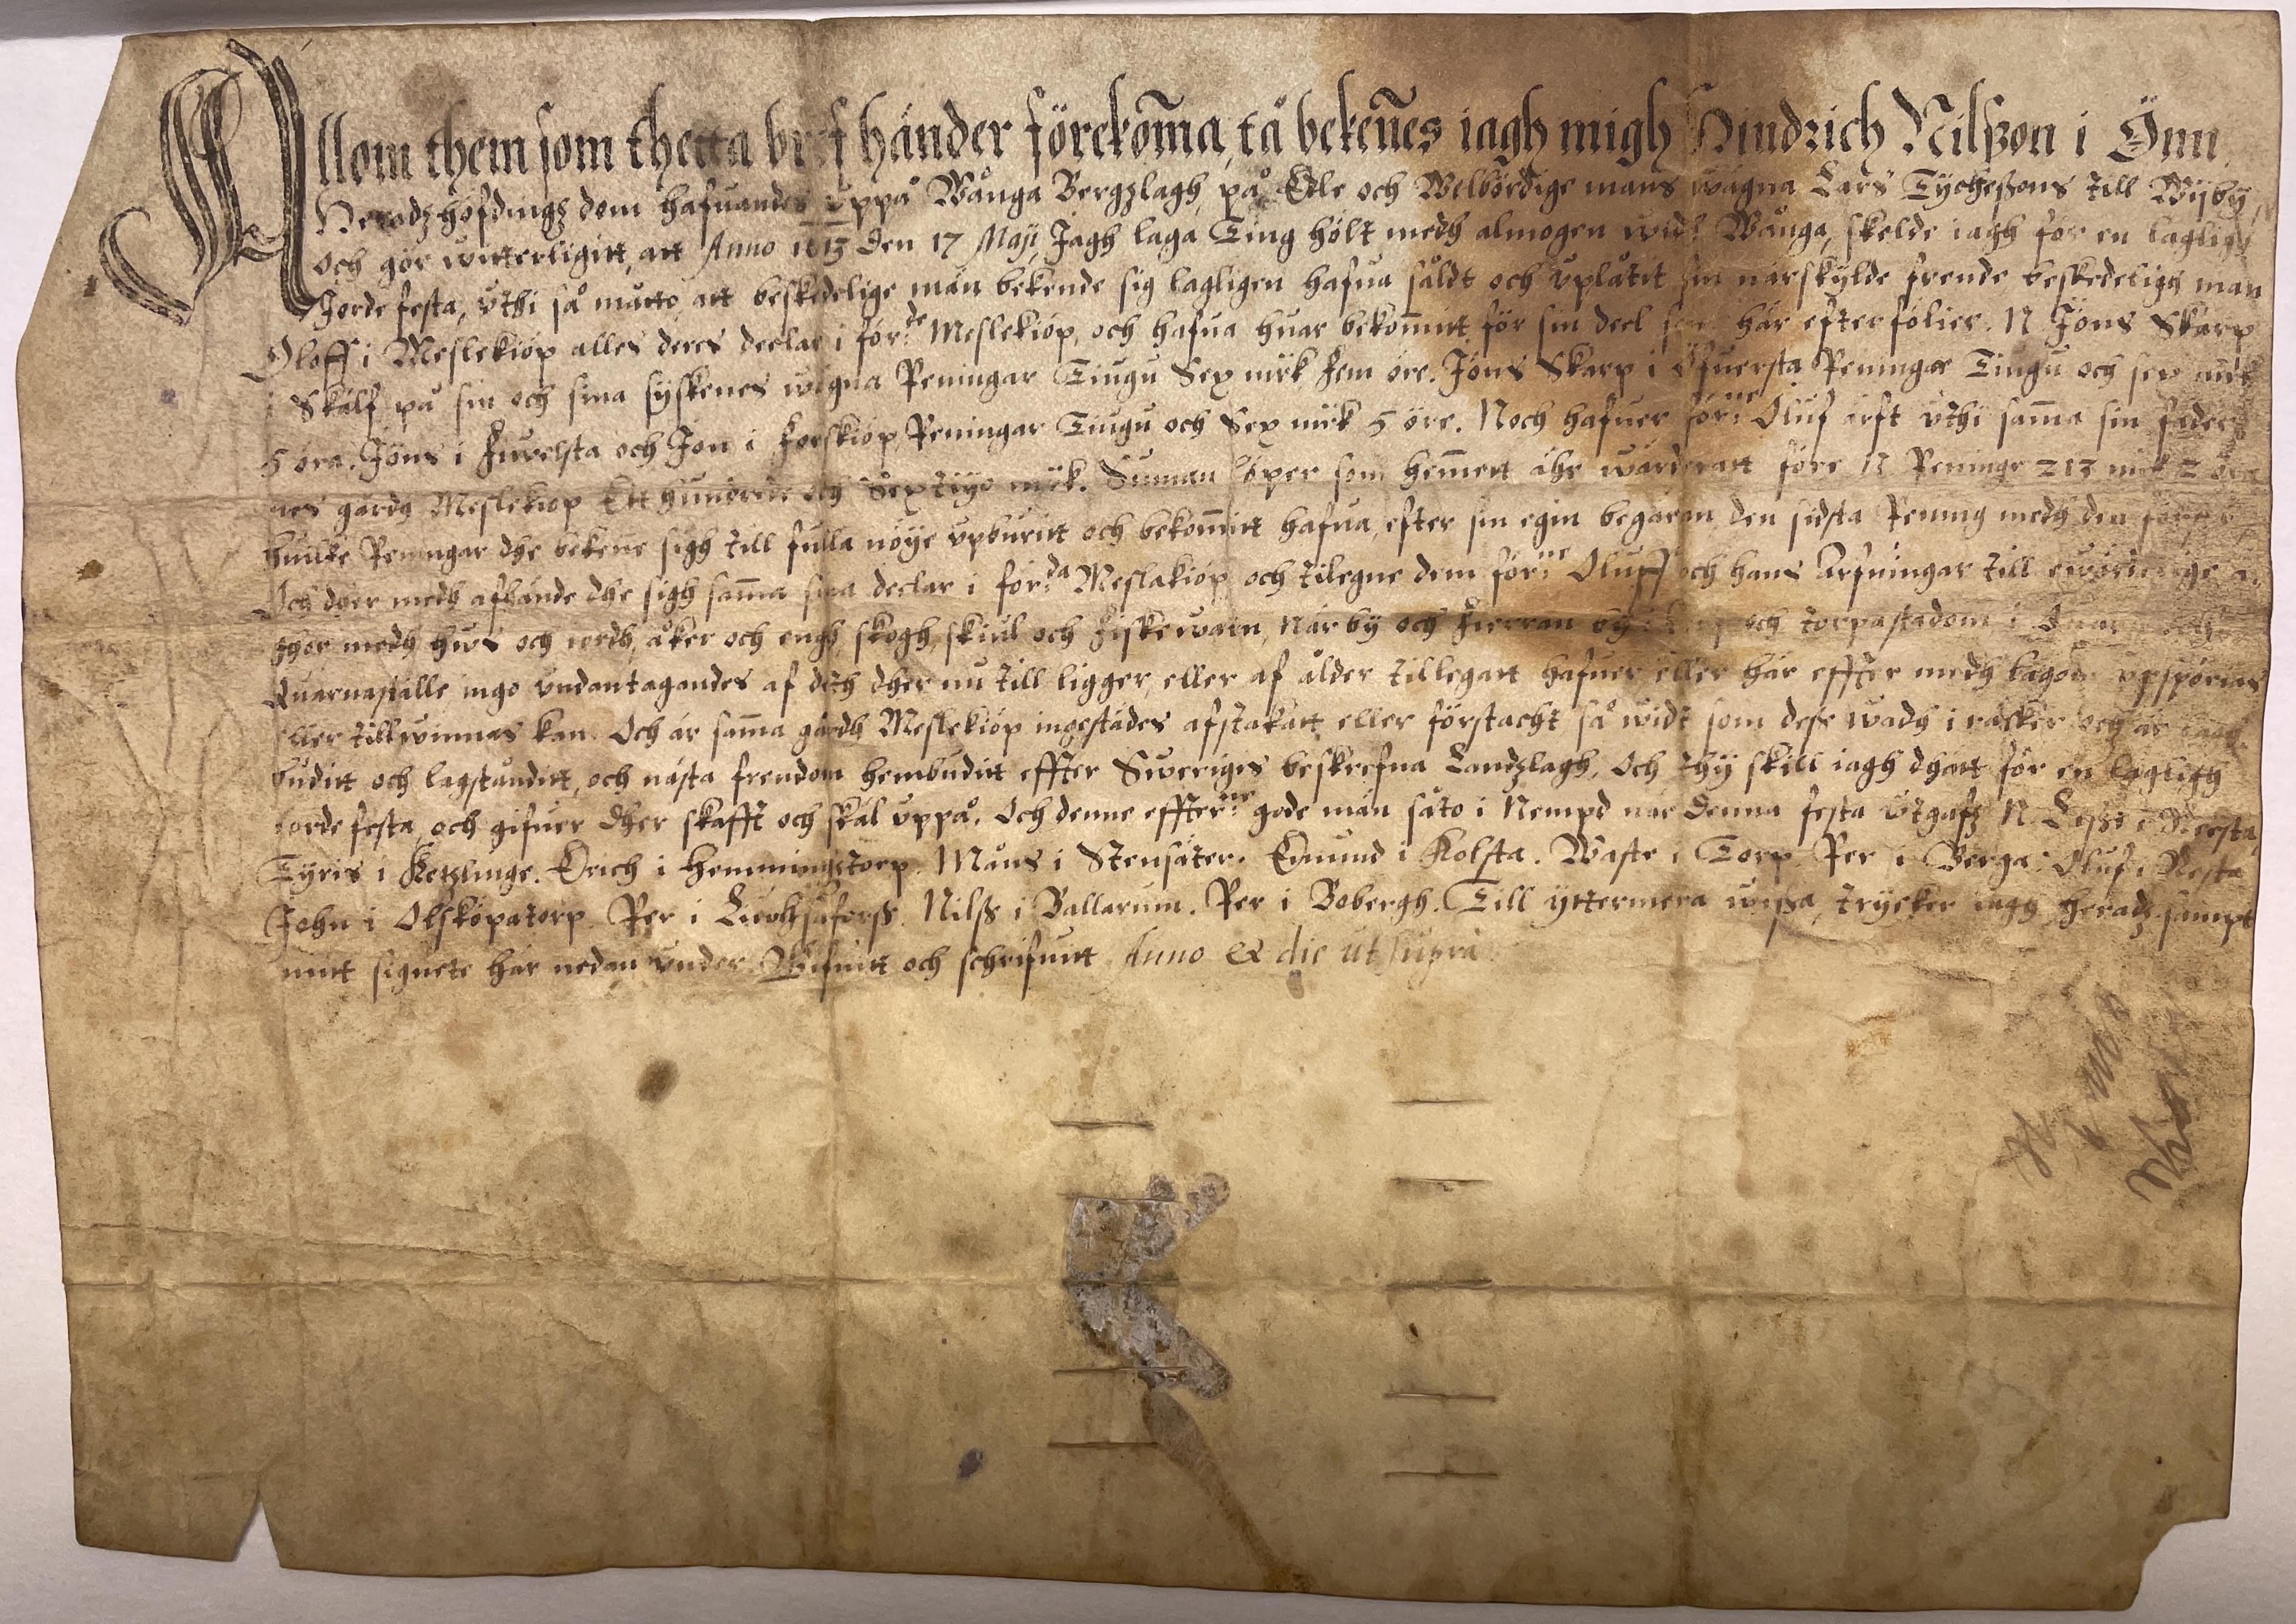 Allom them som thetta bref händer förekom̃a, tå beken̄es iagh migh Hindrich Nilßon i Önn
Heradzhöfdingz dom hafuandes uppå Wånga Bergzlagh, på Edle och Welbördige mans wägna Lars Tÿcheßons till Wijby,
och gör witterligitt, att Anno 1613 den 17 Maji, Jagh laga Ting hölt medh almogen widh Wånga, skelde iagh för en lagligh
Jorde festa, uthi så måtto, att beskedelige män bekende sig lagligen hafua såldt och uplåtit sin närskÿlde frende beskedeligh man
Oloff i Meslekiöp alles deres deelar i för:de Meslekiöp, och hafua huar bekom̄itt för sin deel som här efter fölier. N. Jöns Skarp
i Skälf på sin och sina sÿskenes wägna Peningar Tiugu Sex mrk Fem öre. Jöns Skarp i Öfuersta Peningar Tiugu och sex mrk
5 öra. Jöns i Fiwelsta och Jon i Forskiöp Peningar Tiugu och Sex mrk 5 öre. Noch hafuer för:ne Oluf ärft uthi sam̄a sin feder
nes gårdh Meslekiöp Ett hundrede och Sextijo mrk. Suman löper som hem̄ett ähr wärderatt före Peningr 213 mrk 2 öre
huilke Peningar dhe beken̄e sigh till fulla nöÿe upburitt och bekom̄itt hafua, efter sin egin begäran, den sidsta Pening medh den första,
Och dher medh afhände dhe sigh sam̄a sina deelar i för:da Meslakiöp och tilegne dem för:ne Oluff och hans Arfuingar till ewärdelige ä
ghor medh hws och iordh, åker och engh, skogh, skiul och Fiskewatn, när bÿ och Fierran och torpastadom i Quarn och
Quarnaställe ingo undantagandes af deth dher nu till ligger, eller af ålder tillegatt hafuer eller här effter medh lagom upspörias
eller tillwinnas kan. Och är sam̄a gårdh Meslekiöp ingestädes afstakatt eller förstacht så widt som dess wadh i räcker och är lagh
buditt och lagstånditt, och nästa frendom hembuditt effter Sweriges beskrefna Landzlagh, Och thÿ skill iagh dhett för en lagligh
iorde festa, och gifuer dher skafft och skäl uppå. Och denne effter:ne gode män såto i Nempd när denna festa utgafz N.
Tÿris i Ketzlinge. Erich i Hemmingztorp. Måns i Stensäter. Emund i Kolsta. Waste i Torp. Per i Berga. Oluf i Nesta
John i Olsköpatorp. Per i Nilß i Ballarum. Per i Bobergh. Till ÿttermera wißa, trÿcker iagh heradz sampt
mitt signete här nedan under. Gifuitt och schrifuitt Anno & die ut supra.